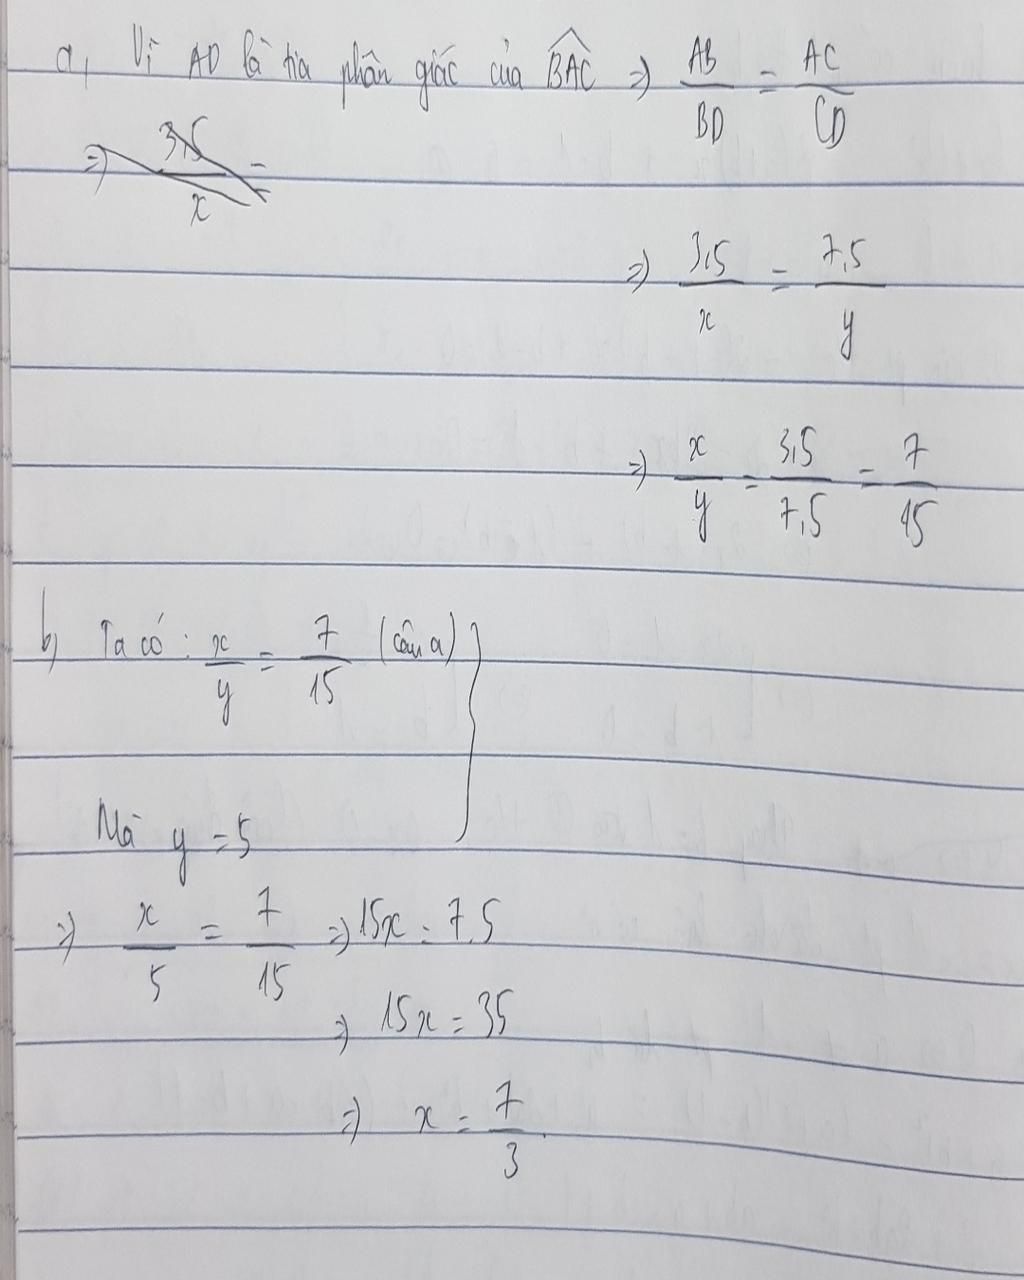 a, Vì AD là tia phân giác của BAC => AB/BD = AC/CD
=> 3,5/x =
=> 3,5/x = 7,5/y
=> x/y = 3,5/7,5 = 7/15
b, Ta có: x/y = 7/15 (câu a) }
Mà y = 5
=> x/5 = 7/15 => 15x = 7.5
=> 15x = 35
=> x = 7/3